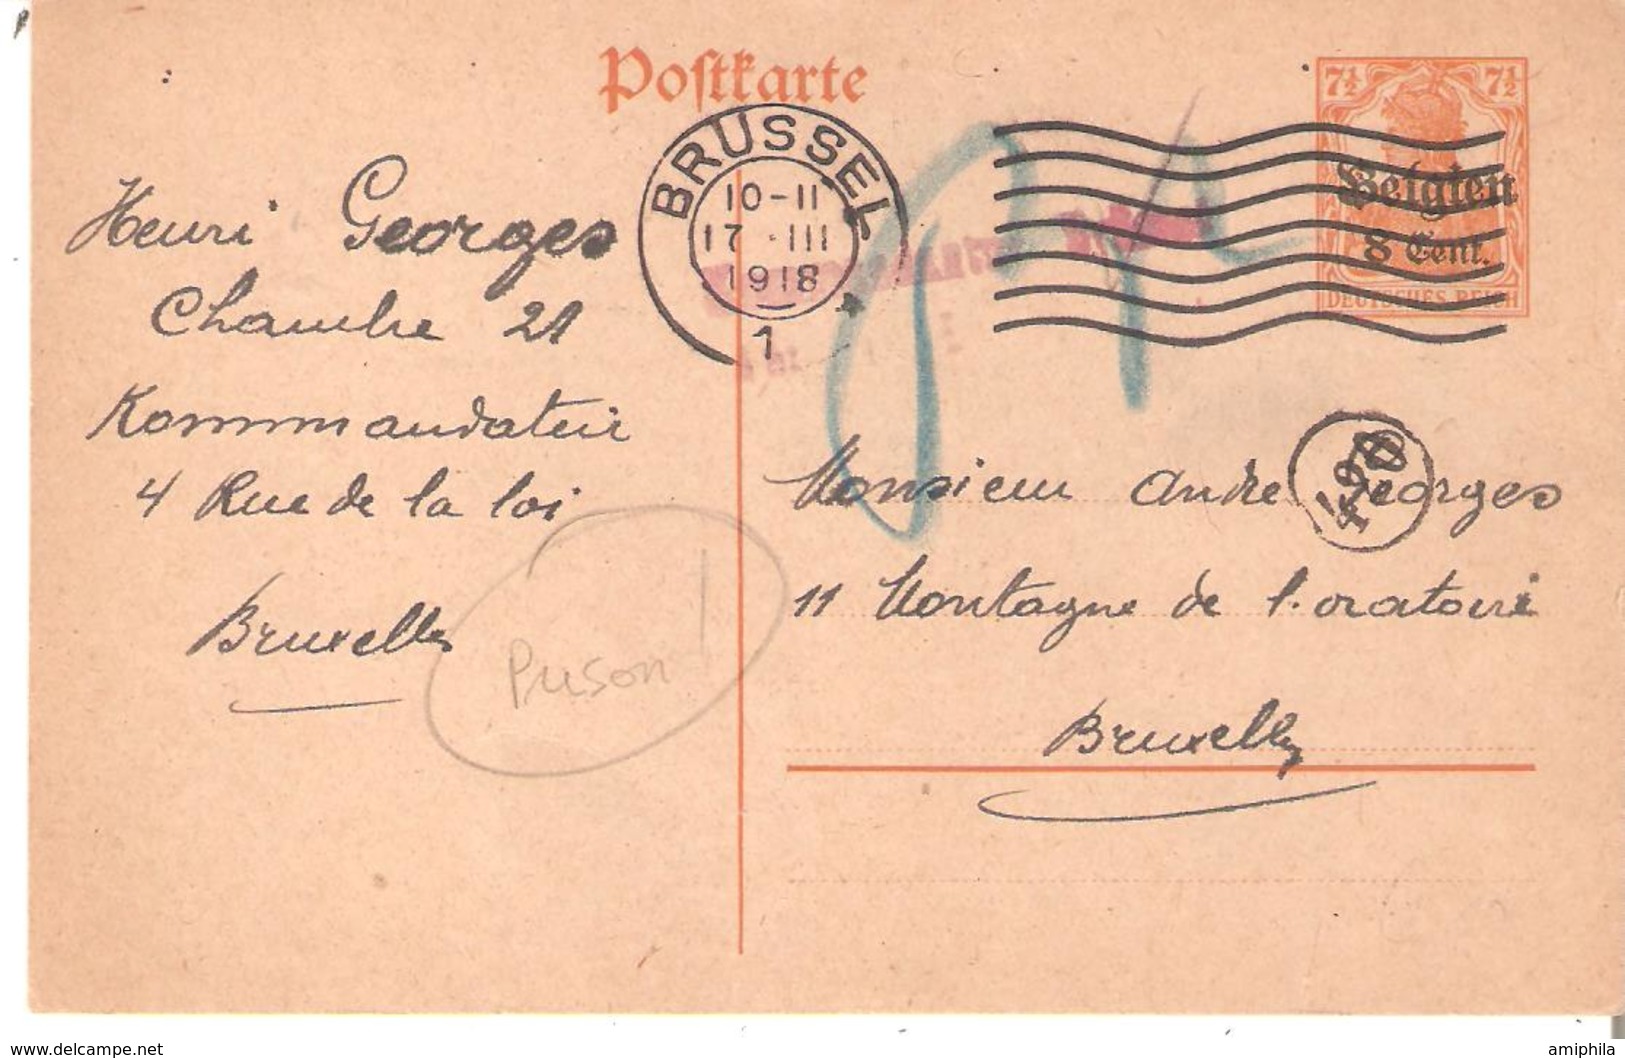 Postkarte
7½ 7½
Belgien
8 Cent.
DEUTSCHES REICH
BRUSSEL
10-11
17 -III
1918
1
Henri Georges
Chambre 21
Kommandatuir
4 Rue de la loi
Bruxelles
Prison !
Monsieur Andre Georges
11 Montagne de l'oratoire
Bruxelles
www.delcampe.net
amiphila